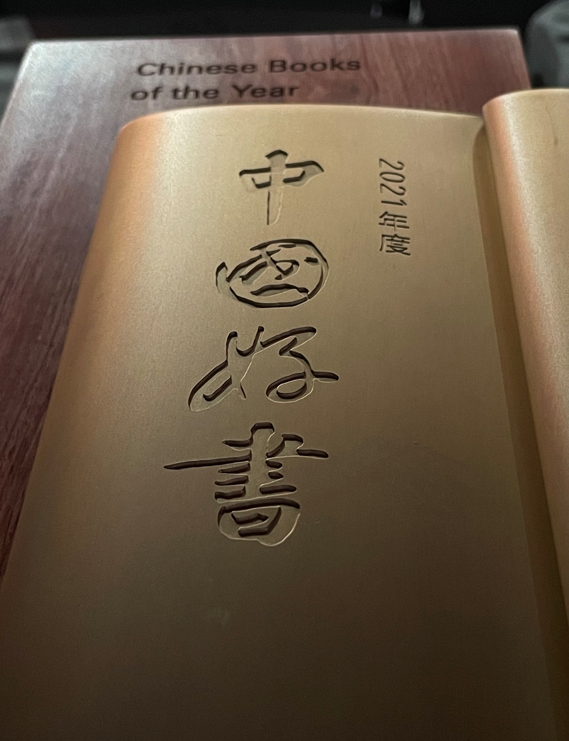 Chinese Books
of the Year
2021年度
中國好書